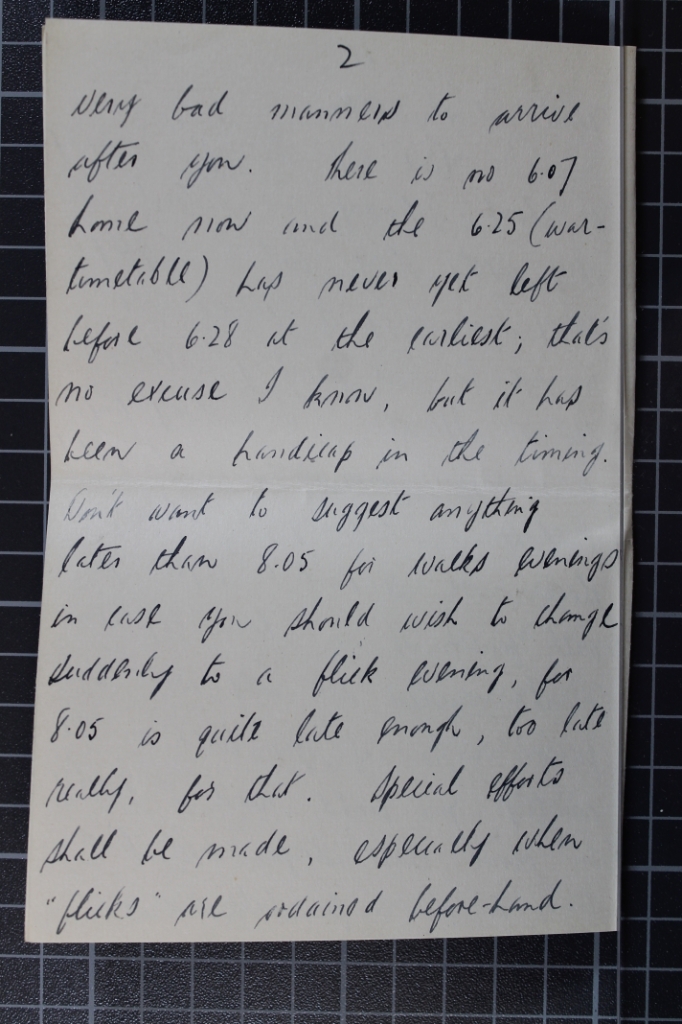 2
very bad manners to arrive
after you. There is no 6.07
home now and the 6.25 (war-
timetable) has never yet left
before 6.28 at the earliest; that's
no excuse I know, but it has
been a handicap in the timing.
Don't want to suggest anything
later than 8.05 for walks evenings
in case you should wish to change
suddenly to a flick evening, for
8.05 is quite late enough, too late
really, for that. Special efforts
shall be made, especially when
"flicks" are ordained before-hand.